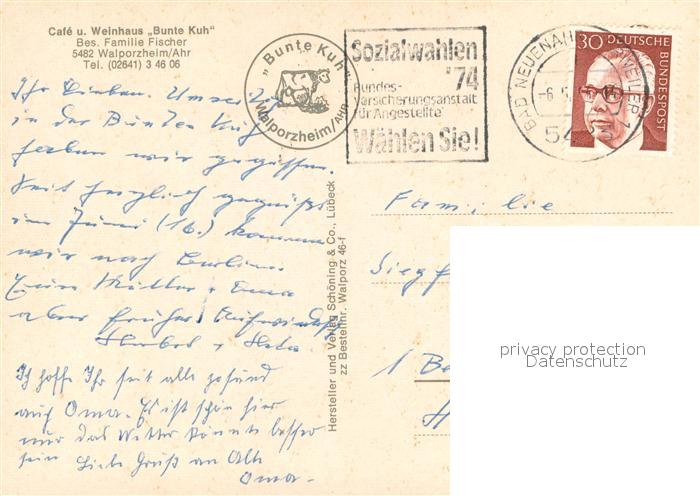 Café u. Weinhaus „Bunte Kuh"
Bes. Familie Fischer
5482 Walporzheim/Ahr
Tel. (02641) 3 46 06
„Bunte Kuh"
Walporzheim/Ahr
Sozialwahlen
'74
Bundes-
versicherungsanstalt
für Angestellte
Wählen Sie!
BAD NEUENAHR
-6.5.
30 DEUTSCHE
BUNDESPOST
Ihr Lieben.
in der Bunten Kuh
haben wir gegessen.
Seid herzlich gegrüßt
im Juni (16.) kommen
wir nach Berlin
Zum Müller + Oma
aber früher
Ich hoffe Ihr seit alle gesund
auf Oma. Es ist schön hier
nur das Wetter könnte besser
sein Liebe Gruß an Alle
Oma-
Hersteller und Verlag Schöning & Co., Lübeck
zz Bestellnr. Walporz 46-f
Familie
Siegf
1 Be
privacy protection
Datenschutz